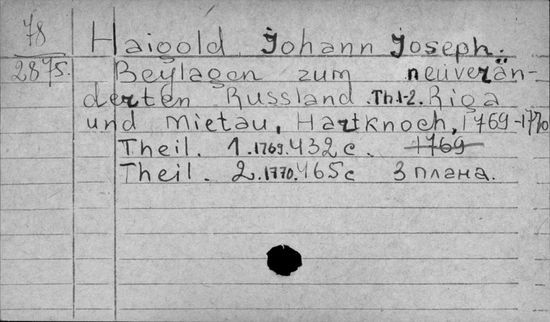 78 Haigold Johann Joseph.
2875. Beylagen zum neuverän-
derten Russland. Th.1-2. Riga
und Mietau, Hartknoch, 1769-1770
Theil. 1.1769.432 c. 1769
Theil. 2.1770.465 c 3 плана.